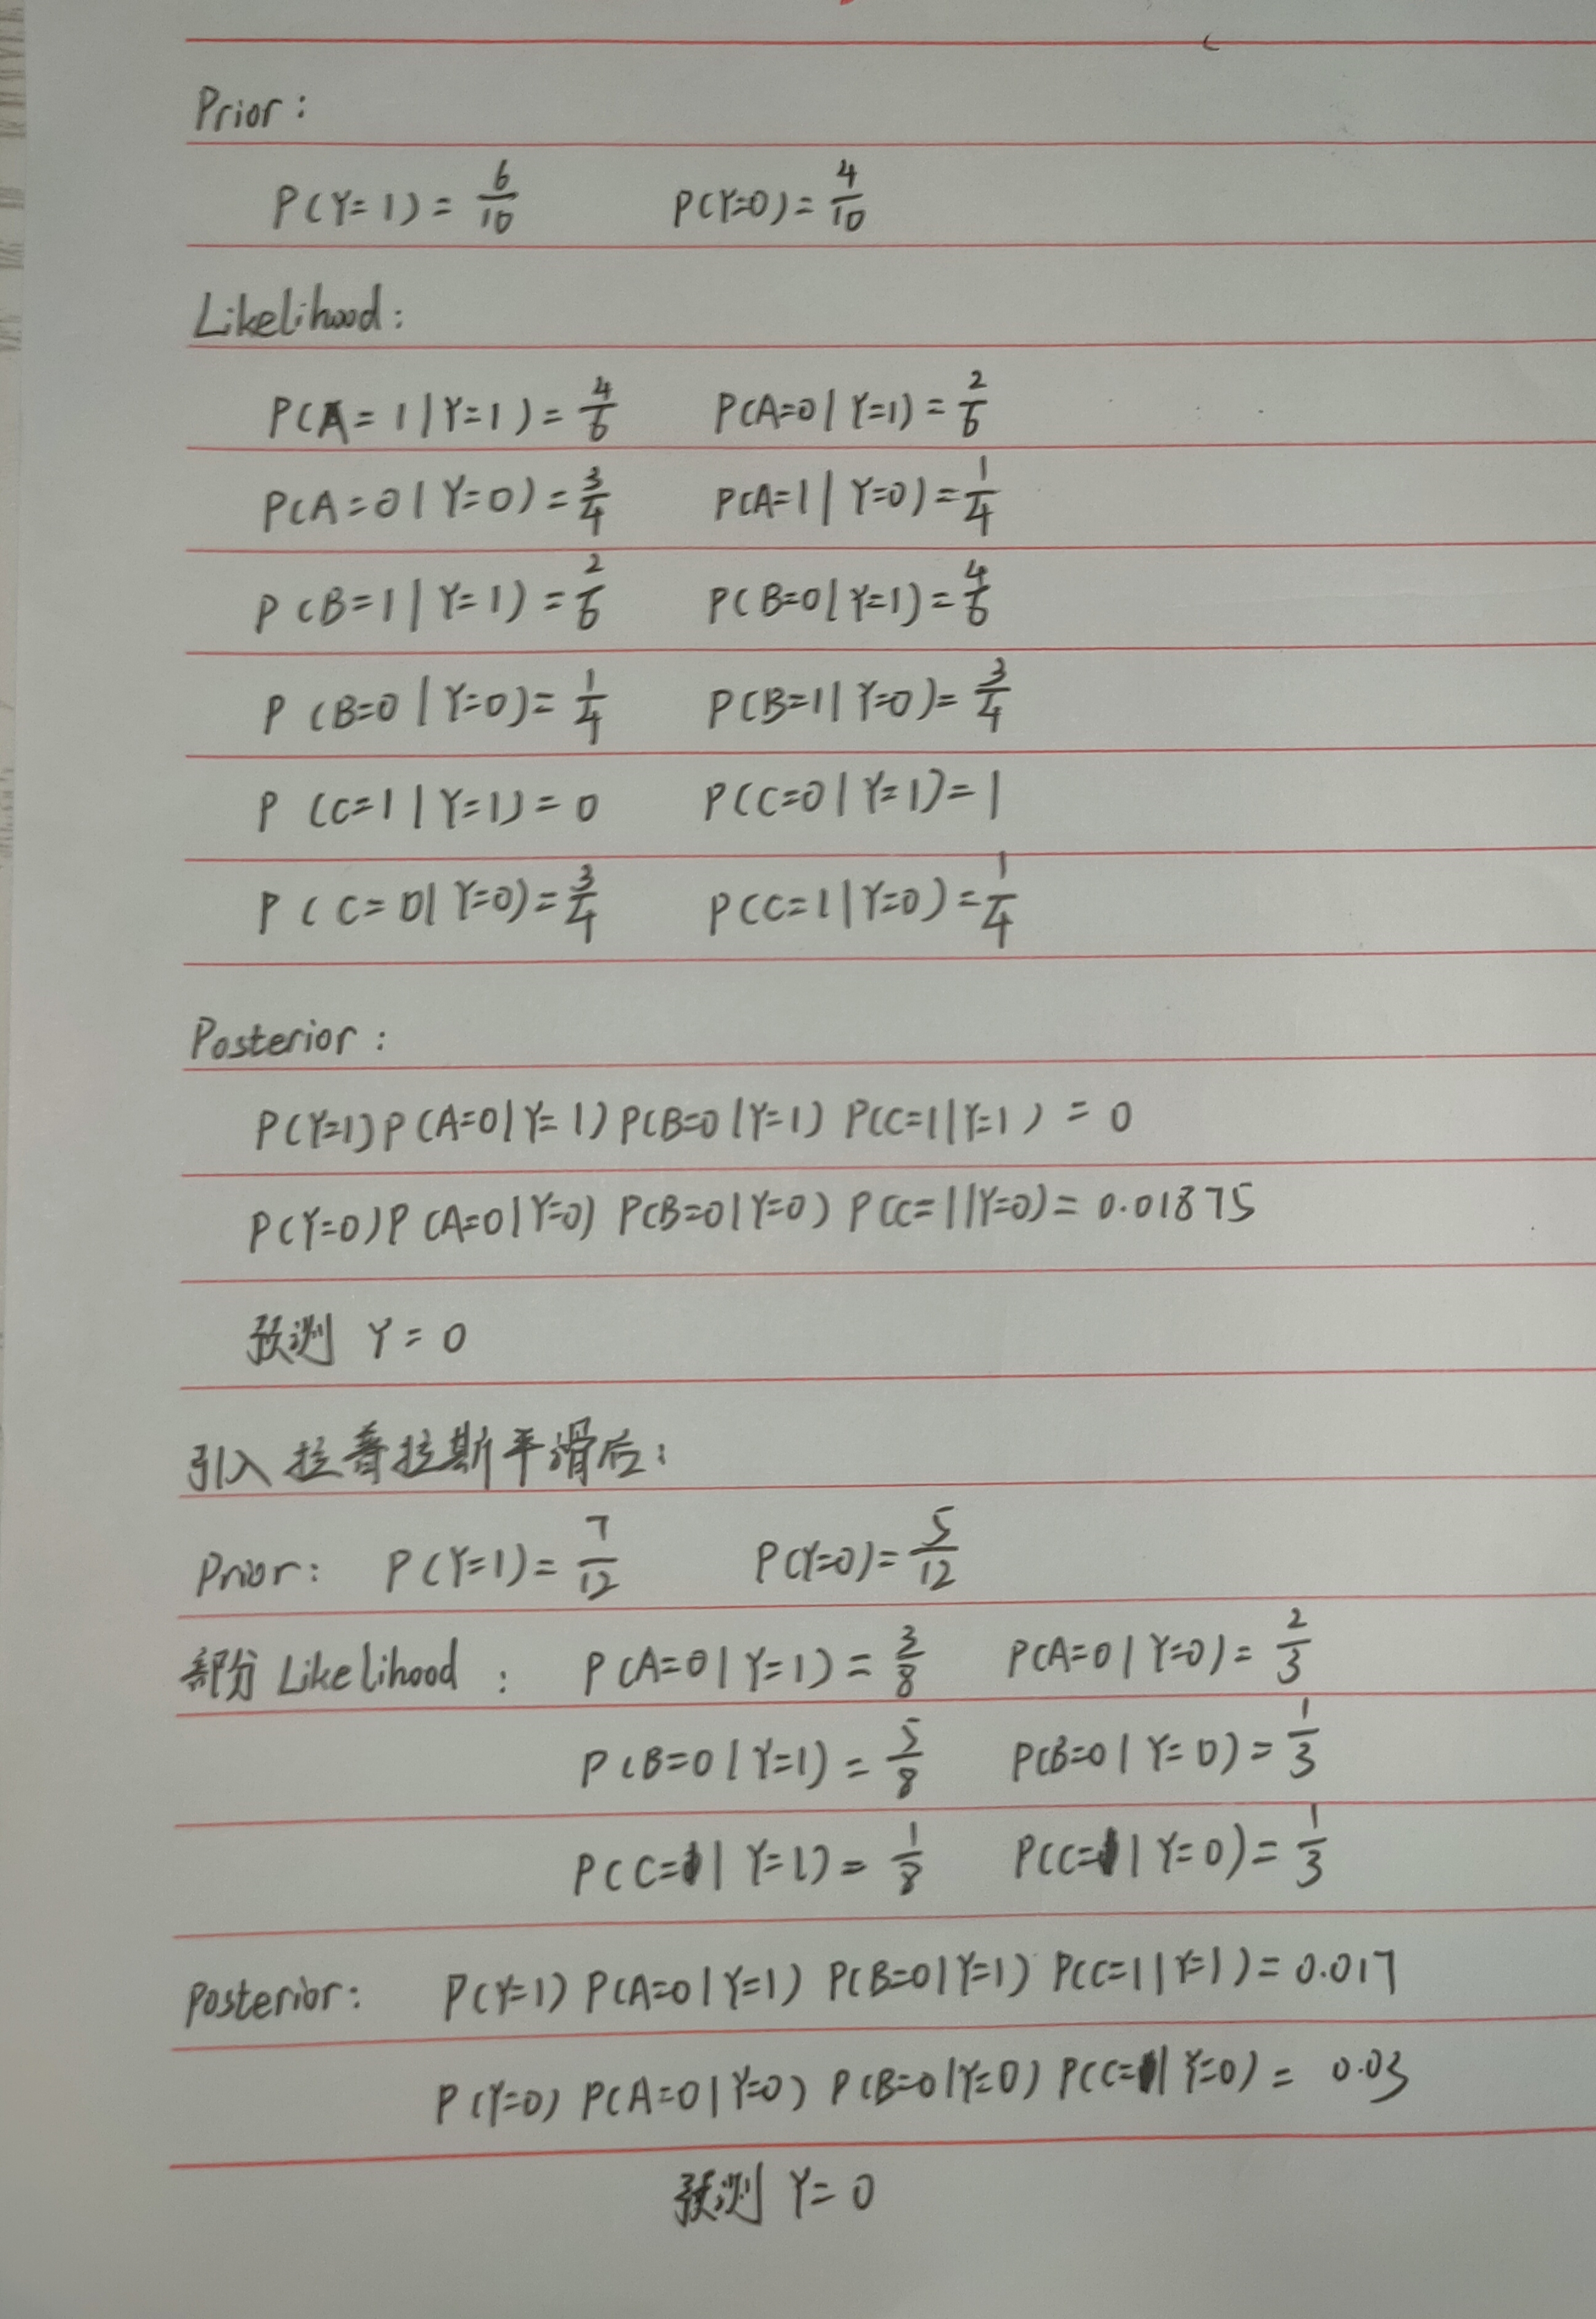 Prior:
P(Y=1) = 6/10 P(Y=0) = 4/10
Likelihood:
P(A=1|Y=1) = 4/6 P(A=0|Y=1) = 2/6
P(A=0|Y=0) = 3/4 P(A=1|Y=0) = 1/4
P(B=1|Y=1) = 2/6 P(B=0|Y=1) = 4/6
P(B=0|Y=0) = 1/4 P(B=1|Y=0) = 3/4
P(C=1|Y=1) = 0 P(C=0|Y=1) = 1
P(C=0|Y=0) = 3/4 P(C=1|Y=0) = 1/4
Posterior:
P(Y=1) P(A=0|Y=1) P(B=0|Y=1) P(C=1|Y=1) = 0
P(Y=0) P(A=0|Y=0) P(B=0|Y=0) P(C=1|Y=0) = 0.01875
预测 Y=0
引入拉普拉斯平滑后:
Prior: P(Y=1) = 7/12 P(Y=0) = 5/12
部分 Likelihood: P(A=0|Y=1) = 3/8 P(A=0|Y=0) = 2/3
P(B=0|Y=1) = 5/8 P(B=0|Y=0) = 1/3
P(C=1|Y=1) = 1/8 P(C=1|Y=0) = 1/3
Posterior: P(Y=1) P(A=0|Y=1) P(B=0|Y=1) P(C=1|Y=1) = 0.017
P(Y=0) P(A=0|Y=0) P(B=0|Y=0) P(C=1|Y=0) = 0.03
预测 Y=0